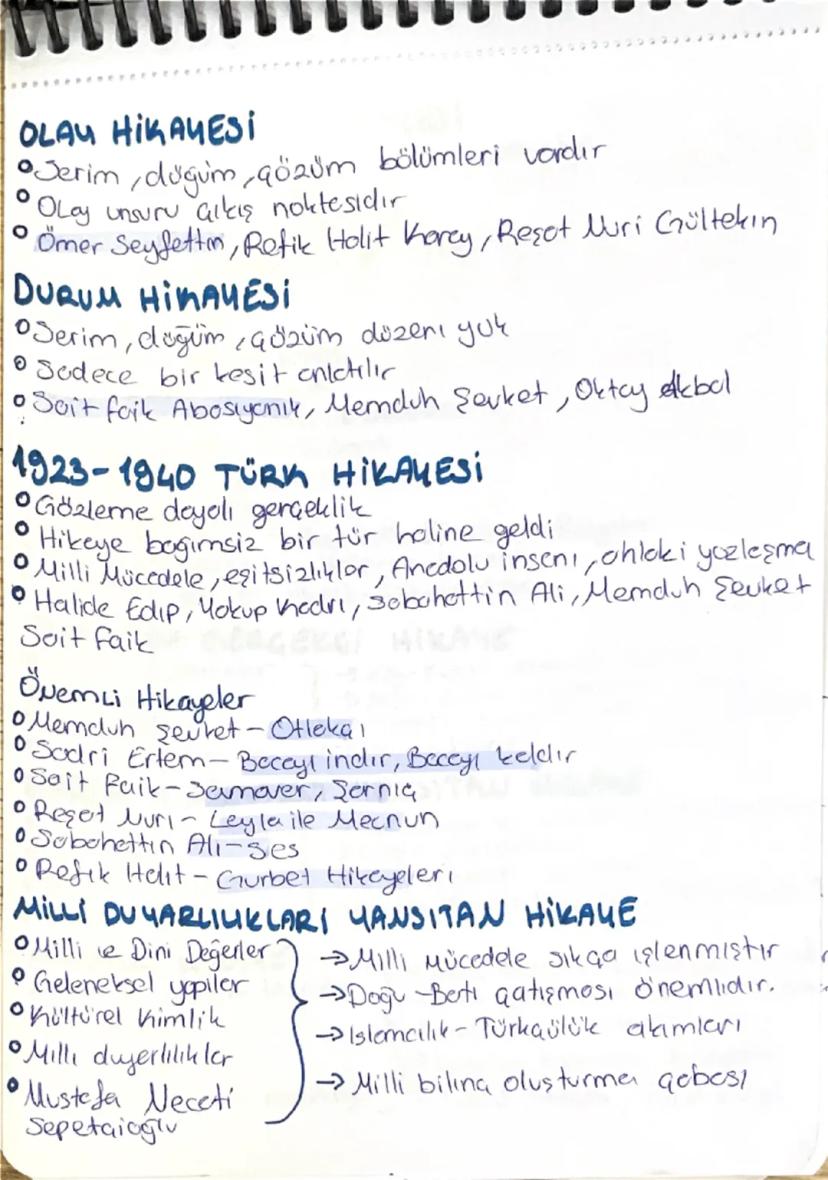 OLAY HİKAYESİ
Serim, düğüm, çözüm bölümleri vardır
Olay unsuru çıkış noktasıdır
Ömer Seyfettin, Refik Halit Karay, Reşat Nuri Gültekin
DURUM HİKAYESİ
Serim, düğüm, çözüm düzeni yok
Sadece bir kesit anlatılır
Sait Faik Abasıyanık, Memduh Şevket, Oktay Akbal
1923-1940 TÜRK HİKAYESİ
Gözleme dayalı gerçeklik
Hikaye bağımsız bir tür haline geldi
Milli Mücadele, eşitsizlikler, Anadolu insanı, ahlaki yozlaşma
Halide Edip, Yakup Kadri, Sabahattin Ali, Memduh Şevket
Sait Faik
Önemli Hikayeler
Memduh Şevket - Otlakçı
Sadri Ertem - Bacayı indir, Bacayı kaldır
Sait Faik - Semaver, Sarnıç
Reşat Nuri - Leyla ile Mecnun
Sabahattin Ali - Ses
Refik Halit - Gurbet Hikayeleri
MİLLİ DUYARLILIKLARI YANSITAN HİKAYE
Milli ve Dini Değerler
Geleneksel yapılar
Kültürel Kimlik
Milli duyarlılıklar
Mustafa Necati
Sepetçioğlu
→ Milli mücadele sıkça işlenmiştir
→ Doğu-Batı çatışması önemlidir.
→ İslamcılık - Türkçülük akımları
→ Milli bilinç oluşturma çabası